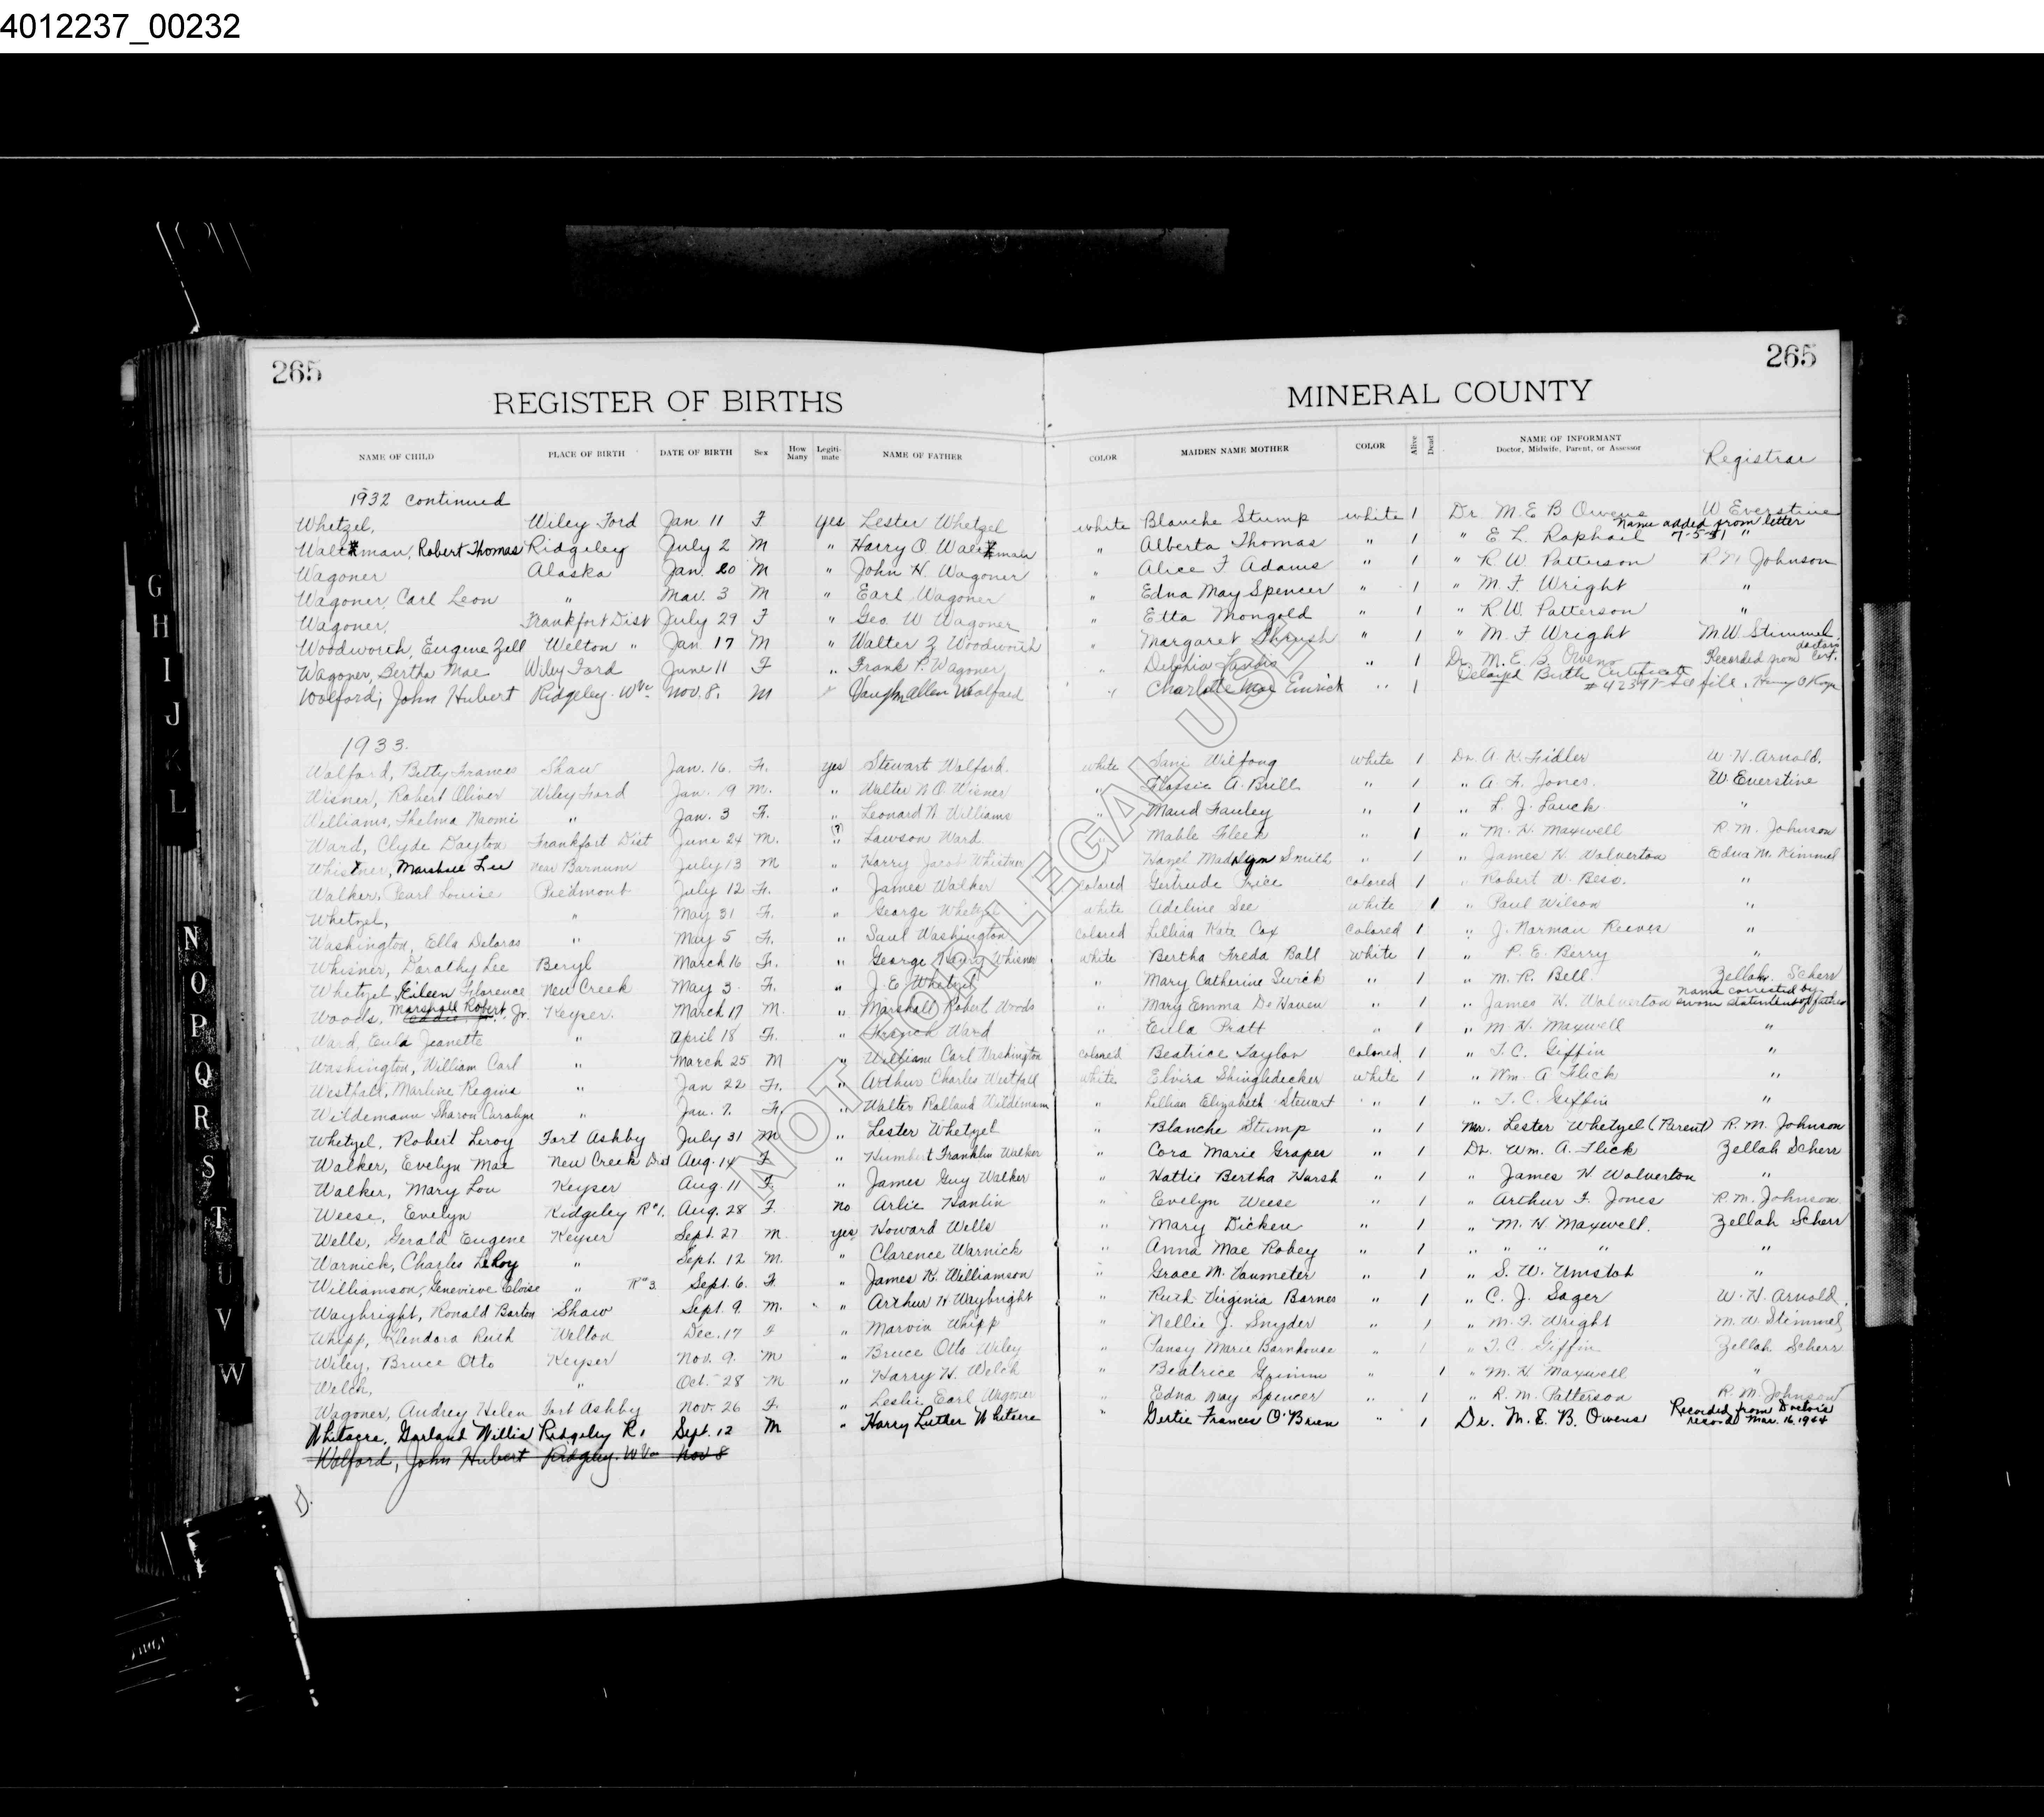 4012237_00232
265 265
REGISTER OF BIRTHS MINERAL COUNTY
NAME OF CHILD PLACE OF BIRTH DATE OF BIRTH Sex How Many Legiti-mate NAME OF FATHER COLOR MAIDEN NAME MOTHER COLOR Alive Dead NAME OF INFORMANT Doctor, Midwife, Parent, or Assessor Registrar
1932 continued
Whetzel, Wiley Ford Jan. 11 F yes Lester Whetzel white Blanche Stump white 1 Dr. M. E B Owens W Everstine
Name added from letter
Robert Thomas Ridgeley July 2 M " Harry O. " Alberta Thomas " 1 " E L. Raphail 7-5-51 "
Wagoner Alaska Jan. 20 M " John H. Wagoner " Alice F Adams " 1 " R W. Patterson R M Johnson
Wagoner, Carl Leon " Mar. 3 M " Earl Wagoner " Edna May Spencer " 1 " M. F. Wright "
Wagoner, Frankfort Dist July 29 F " Geo. W Wagoner " Etta Mongold " 1 " R.W. Patterson "
Woodworth, Eugene Zell Welton " Jan 17 M " Walter Z Woodworth " Margaret Shrush " 1 " M. F Wright M W. Stimmel
Wagoner, Bertha Mae Wiley Ford June 11 F " Frank P. Wagoner " Delphia " 1 Dr. M. E. B. Owens Recorded from doctors cert.
Wolford, John Hubert Ridgeley W Va Nov. 8. M " Vaughn Allen Wolford " Charlotte Mae Emrick " 1 Delayed Birth Certificate
see file,
1933.
Wolford, Betty Frances Shaw Jan. 16. F. yes Stewart Wolford. white Wilfong white 1 Dr. A. K. Fidler W. H. Arnold.
Wisner, Robert Oliver Wiley Ford Jan. 19 M. " Walter N. O. Wisner " A. Brill " 1 " A. F. Jones. W. Everstine
Williams, Thelma Naomi " Jan. 3 F. " Leonard N. Williams " Maud Fauley " 1 " L. J. Lauck "
Ward, Clyde Dayton Frankfort Dist June 24 M. " (?) Lawson Ward. " Mable Fleek " 1 " M. H. Maxwell R. M. Johnson
Whisner, Marshall Lee New Barnum July 13 M " Harry Jacob Whisner " Hazel Madelyn Smith " 1 " James H. Wolverton Edna M. Kimmel
Walker, Pearl Louise Piedmont July 12 F. " James Walker colored Gertrude Price colored 1 " Robert W. Bess. "
Whetzel, " May 31 F. " George Whetzel white Adeline See white 1 " Paul Wilson "
Washington, Ella Deloras " May 5 F. " Saul Washington colored Lillian Kate Cox colored 1 " J. Norman Reeves "
Whisner, Dorothy Lee Beryl March 16 F. " George Harry Whisner white Bertha Freda Ball white 1 " P. E. Berry "
Whetzel Eileen Florence New Creek May 3 F. " J. E. Whetzel " Mary Catherine Swick " 1 " M. R. Bell Zellah Scherr
Woods, Marshall Robert, Jr. Keyser. March 17 M. " Marshall Robert Woods " Mary Emma De Haven " 1 " James H. Wolverton Name corrected by sworn statement of father
Ward, Eula Jeanette " April 18 F. " Francis Ward " Eula Pratt " 1 " M. H. Maxwell "
Washington, William Carl " March 25 M " William Carl Washington colored Beatrice Taylor colored. 1 " T. C. Giffin "
Westfall, Marline Regina " Jan 22 F. " Arthur Charles Westfall white Elvira Shingledecker white 1 " Wm. A Flick "
Wildemann Sharon Carolyn " Jan. 7. F. " Walter Rolland Wildemann " Lillian Elizabeth Stewart " 1 " T. C. Giffin "
Whetzel, Robert Leroy Fort Ashby July 31 M " Lester Whetzel " Blanche Stump " 1 Mr. Lester Whetzel (Parent) R. M. Johnson
Walker, Evelyn Mae New Creek Dist Aug. 14 F " Humbert Franklin Walker " Cora Marie Graper " 1 Dr. Wm. A. Flick Zellah Scherr
Walker, Mary Lou Keyser Aug. 11 F. " James Guy Walker " Hattie Bertha Harsh " 1 " James H. Wolverton "
Weese, Evelyn Ridgeley R#1. Aug. 28 F. no Arlie Hanlin " Evelyn Weese " 1 " Arthur F. Jones R. M. Johnson
Wells, Gerald Eugene Keyser Sept. 27 M yes Howard Wells " Mary Dicken " 1 " M. H. Maxwell. Zellah Scherr
Warnick, Charles LeRoy " Sept. 12 M. " Clarence Warnick " Anna Mae Robey " 1 " " " " "
Williamson, Genevieve Eloise " R#3 Sept. 6. F. " James H. Williamson " Grace M. Vanmeter " 1 " S. W. Umstot "
Waybright, Ronald Barton Shaw Sept. 9. M. " Arthur H. Waybright " Ruth Virginia Barnes " 1 " C. J. Sager W. H. Arnold.
Whipp, Glendora Ruth Welton Dec. 17 F " Marvin Whipp " Nellie J. Snyder " 1 " M. F. Wright M. W. Stimmel
Wiley, Bruce Otto Keyser Nov. 9. M " Bruce Otto Wiley " Pansy Marie Barnhouse " 1 " T. C. Giffin Zellah Scherr
Welch, " Oct. 28 M " Harry H. Welch " Beatrice Grimm " 1 " M. H. Maxwell "
Wagoner, Audrey Helen Fort Ashby Nov. 26 F. " Leslie Earl Wagoner " Edna May Spencer " 1 " R. M. Patterson R. M. Johnson
Whitacre, Garland Willis Ridgeley R1 Sept. 12 M " Harry Luther Whitacre " Gertie Frances O'Brien " 1 Dr. M. E. B. Owens Recorded from Doctor's record Mar. 16, 1964
Wolford, John Hubert Ridgeley. W Va Nov 8
NOT FOR LEGAL USE
G
H
I
J
K
L
N
O
P
Q
R
S
T
U
V
W